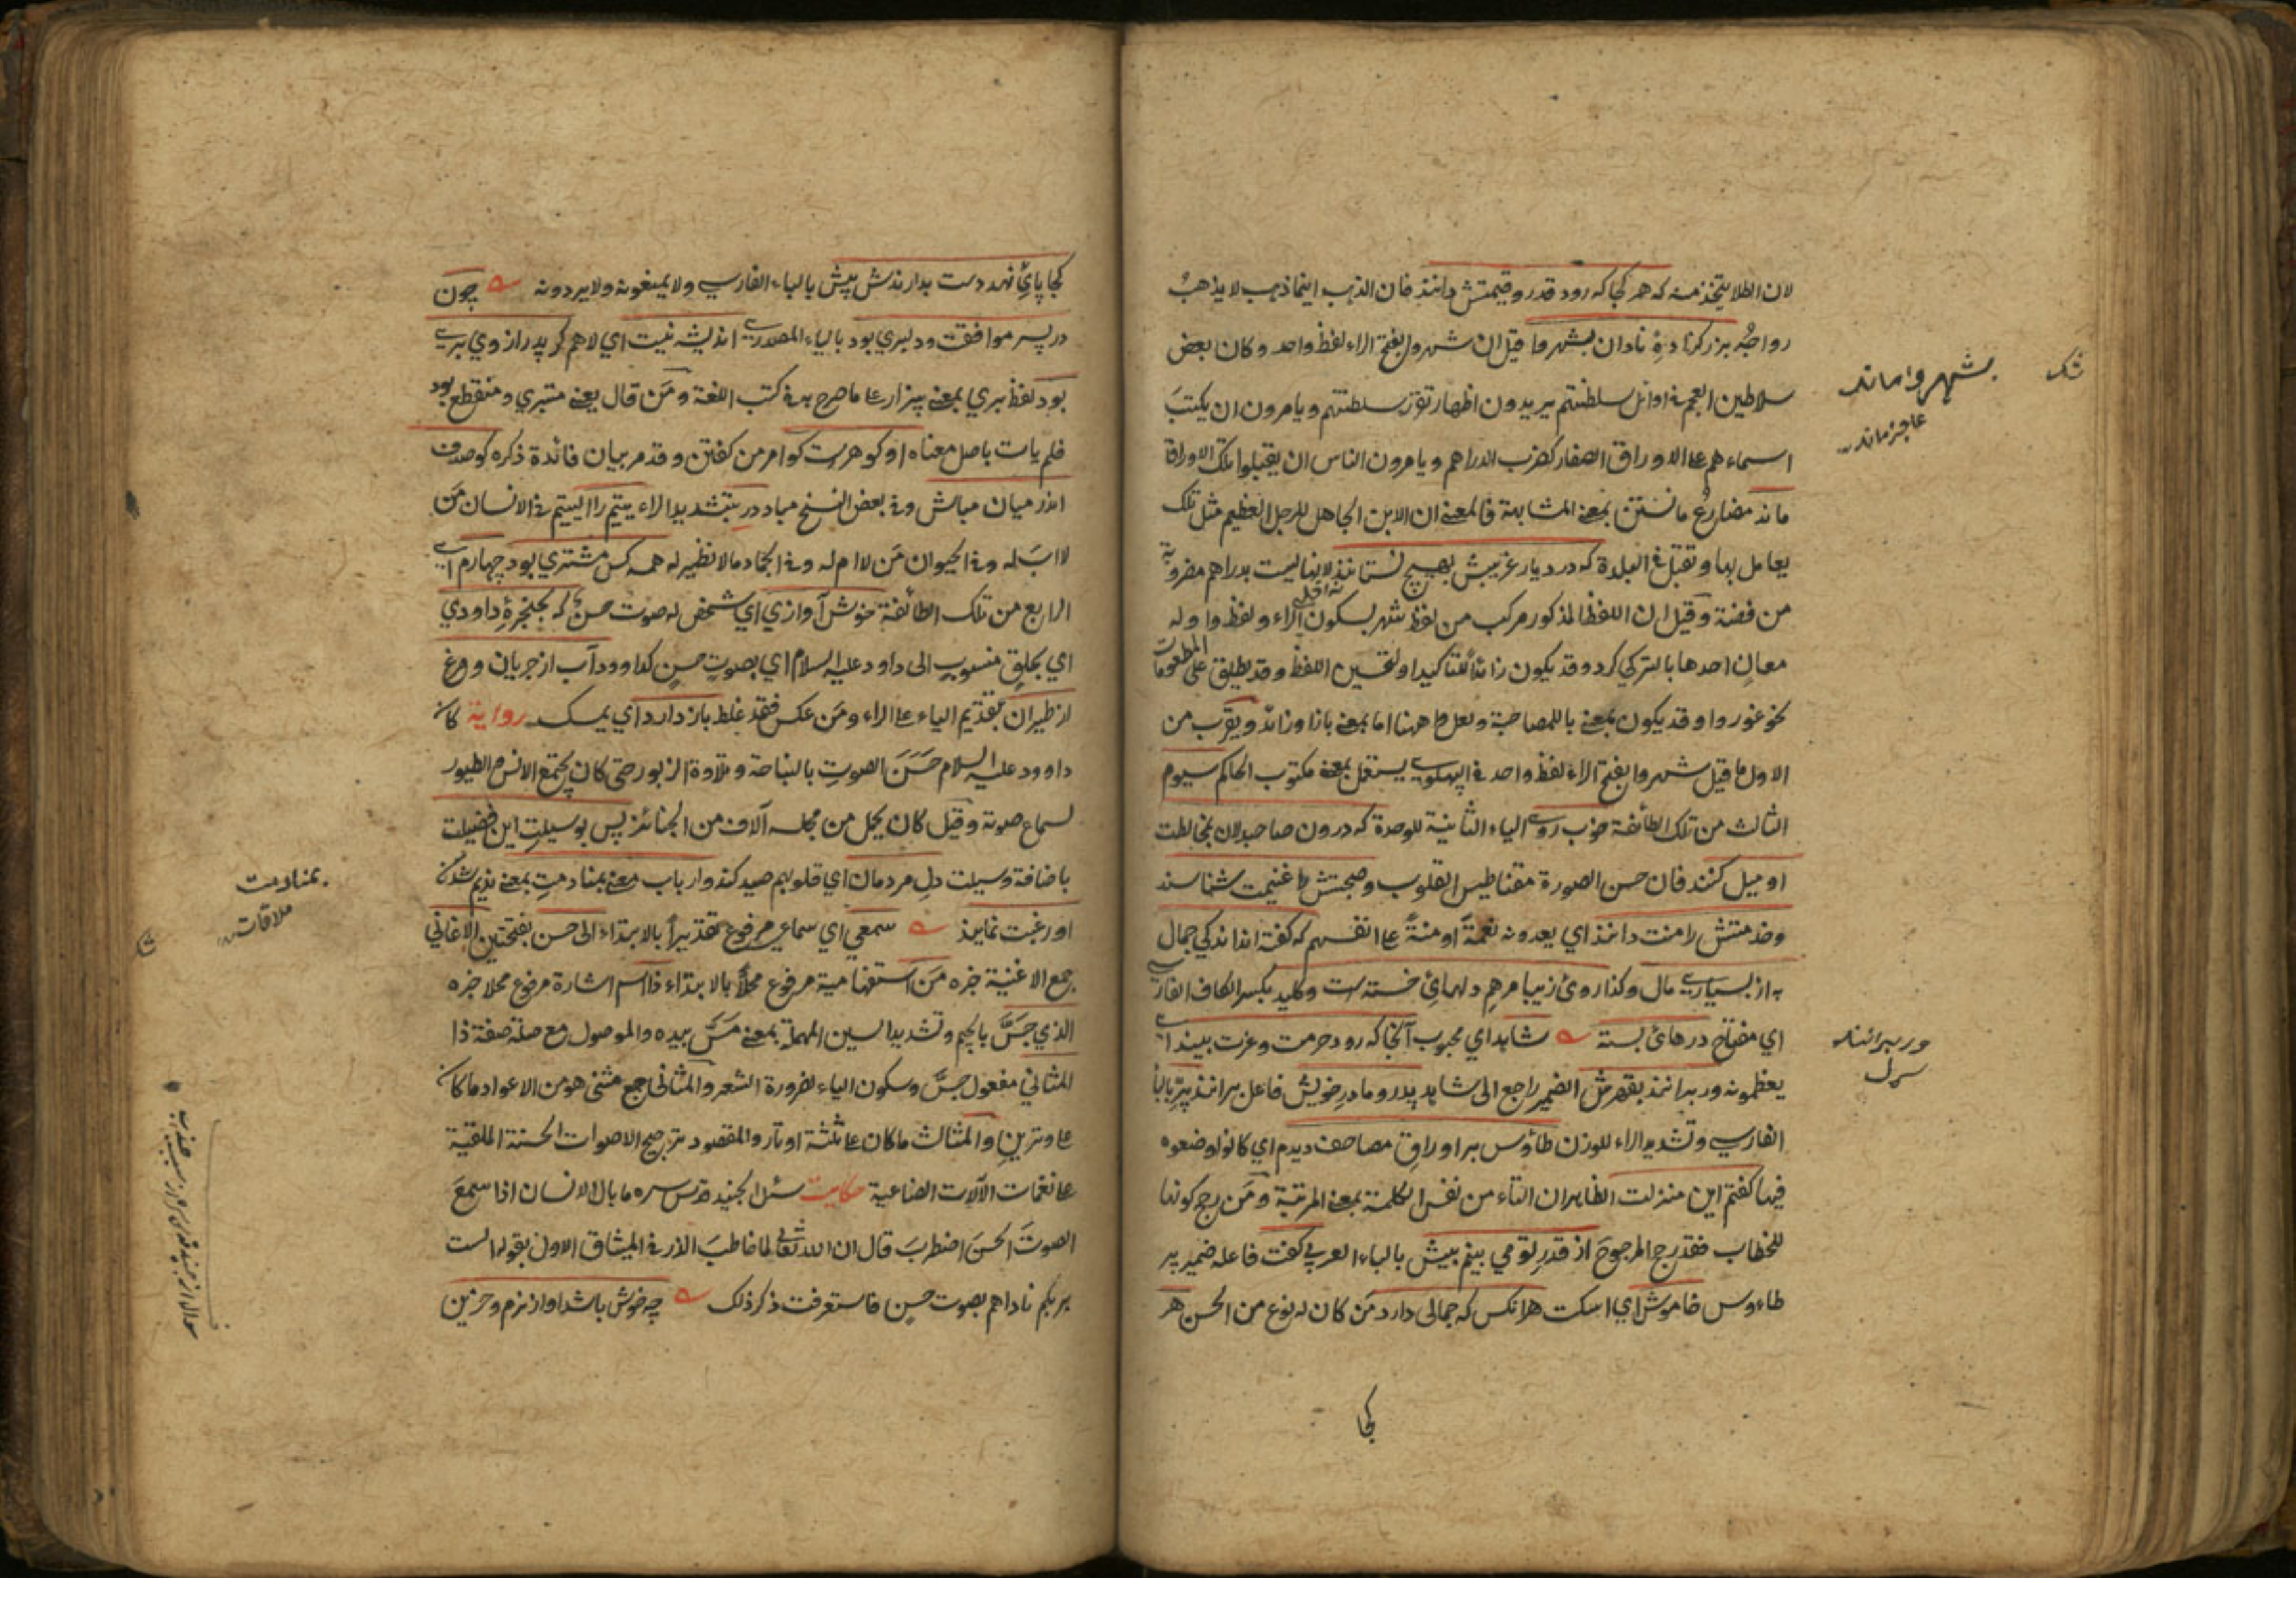 لان الطلا يتخذ منه كه هر كجا كه رود قدر و قيمتش دانند فان الذهب اينما ذهب لا يذهب
رواجه بزرگ زادۀ نادان بشهر وا قيل ان شهروا بفتح الراء لفظ واحد وكان بعض
سلاطين العجم فى اوائل سلطنتهم يريدون اظهار تقرر سلطنتهم ويامرون ان يكتب
اسماءهم على الاوراق الصغار كضرب الدراهم ويامرون الناس ان يقبلوا تلك الاوراق
ماند مضارع مانستن بمعنى المشابهة فالمعنى ان الابن الجاهل للرجل العظيم مثل تلك
يعامل بها وتقبل فى البلدة كه در ديار غريبش بهيچ نستانند لانها ليست بدراهم مضروبة
من فضة وقيل ان اللفظ المذكور مركب من لفظ شهر بسكون الراء ولفظ وا وله
معان احدها بالتركي كرد وقد يكون زائدا للتاكيد او لتحسين اللفظ وقد يطلق على المطعومات
نحو غوروا وقد يكون بمعنى با للمصاحبة ولعل وا ههنا اما بمعنى با او زائد ويقرب من
الاول ما قيل شهروا بفتح الراء لفظ واحد فى الپهلوى يستعمل بمعنى مكتوب الحاكم سيوم
الثالث من تلك الطائفة خوب روى الياء الثانية للوحدة كه درون صاحبدلان بمخالطت
او ميل كنند فان حسن الصورة مقناطيس القلوب وصحبتش را غنيمت شناسند
وخدمتش را منت دانند اي يعدونه نعمة او منة على انفسهم كه گفته اند اندكي جمال
به از بسيارى مال وكذا روئ زيبا مرهم دلهائ خسته است وكليد بكسر الكاف الفارسى
اي مفتاح درهائ بسته شاهد اي محبوب آنجا كه رود حرمت وعزت بيند اى
يعظمونه ور برانند بقهرش الضمير راجع الى شاهد پدر و مادر خويش فاعل برانند پر بالباء
الفارسى وتشديد الراء للوزن طاؤس بر اوراق مصاحف ديدم اي كانوا وضعوه
فيها گفتم اين منزلت الظاهر ان التاء من نفس الكلمة بمعنى المرتبة ومن رجح كونها
للخطاب فقد رجح المرجوح از قدر تو مي بينم بيش بالباء العربى گفت فاعله ضمير پر
طاءوس خاموش اي اسكت هرانكس كه جمالى دارد من كان له نوع من الحسن هر
كجا
بشهر وا ماند
عاجز ماند
ور برانند
كجا پائ نهد دست بدارندش پيش بالباء الفارسى ولا يمنعونه ولا يردونه چون
در پسر موافقت ودلبري بود بالياء المصدرى انديشه نيست اي لا هم گر پدر از وي برى
بود لفظ بري بمعنى بيزار على ما صرح به فى كتب اللغة ومن قال يعنى متبري ومنقطع بود
فلم يات باصل معناه او گوهر ست گو امر من گفتن وقد مر بيان فائدة ذكره گو صدف
اندر ميان مباش وفى بعض النسخ مباد در بتشديد الراء يتيم را اليتيم فى الانسان من
لا اب له وفى الحيوان من لا ام له وفى الجماد ما لا نظير له همه كس مشتري بود چهارم اى
الرابع من تلك الطائفة خوش آوازي اي شخص له صوت حسن كه بحنجرۀ داودي
اي بحلق منسوب الى داود عليه السلام اي بصوت حسن كداوود آب از جريان ومرغ
از طيران بتقديم الياء على الراء ومن عكس فقد غلط باز دارد اي يمسك رواية كان
داوود عليه السلام حسن الصوت بالنياحة وتلاوة الزبور حتى كان يجتمع الانس والطيور
لسماع صوته وقيل كان يحمل من مجلسه آلاف من الجنائز پس بوسيلت اين فضيلت
باضافة وسيلت دل مردمان اي قلوبهم صيد كند وارباب معنى بمنادمت بمعنى نديم شدن
او رغبت نمايند سمعي اي سماعي مرفوع تقديرا بالابتداء الى حسن بفتحتين الاغاني
جمع الاغنية خبره من استفهامية مرفوع محلا بالابتداء ذا اسم اشارة مرفوع محلا خبره
الذي جس بالجيم وتشديد السين المهملة بمعنى مس بيده والموصول مع صلته صفة ذا
المثاني مفعول جس وسكون الياء لضرورة الشعر والمثانى جمع مثنى هو من الاعواد ما كان
على وترين والمثالث ما كان على ثلثة اوتار والمقصود ترجيح الاصوات الحسنة الخلقية
على نغمات الآلات الصناعية حكايت سئل الجنيد قدس سره ما بال الانسان اذا سمع
الصوت الحسن اضطرب قال ان الله تعالى لما خاطب الذر فى الميثاق الاول بقوله الست
بربكم ناداهم بصوت حسن فاستعرفت ذكر ذلك چه خوش باشد اواز نرم وحزين
بمنادمت
ملاقات